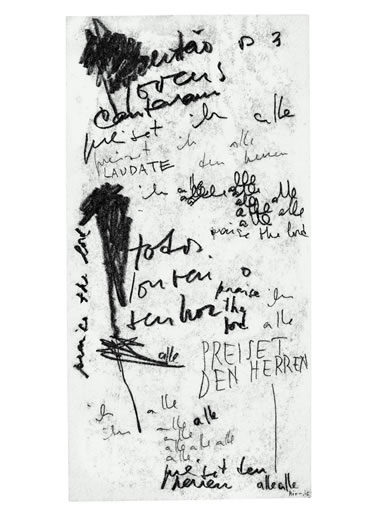 então 3
louvens
cantaram
preiset ih alle
preiset ih alle
LAUDATE den herren
ih alle alle alle
alle alle
alle alle
praise the lord
praise the lord
todos
louven o
senhor
praise ih
thy
lord alle
alle
PREISET
DEN HERREN
ih alle
ihn alle alle
alle alle alle
alle
preiset den
herren alle alle